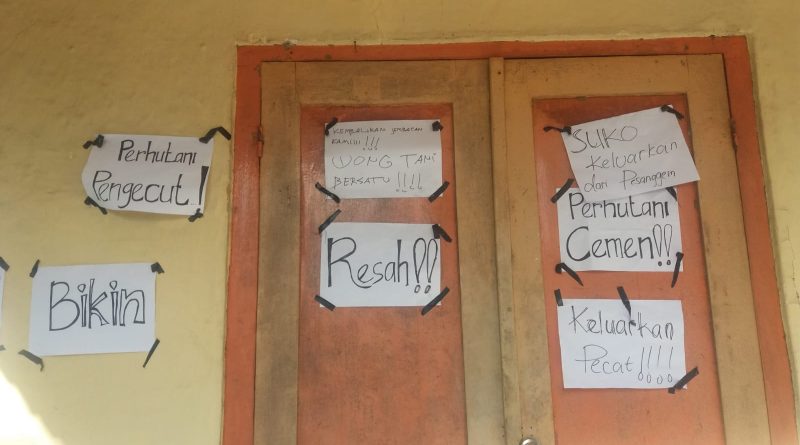 Perhutani
Pengecut!
Bikin
KEMBALIKAN JEMBATAN
KAMI!!!
WONG TANI
BERSATU !!!!
Resah!!
SUKO
Keluarkan
dari Pesanggem
Perhutani
Cemen!!
Keluarkan
Pecat!!!!